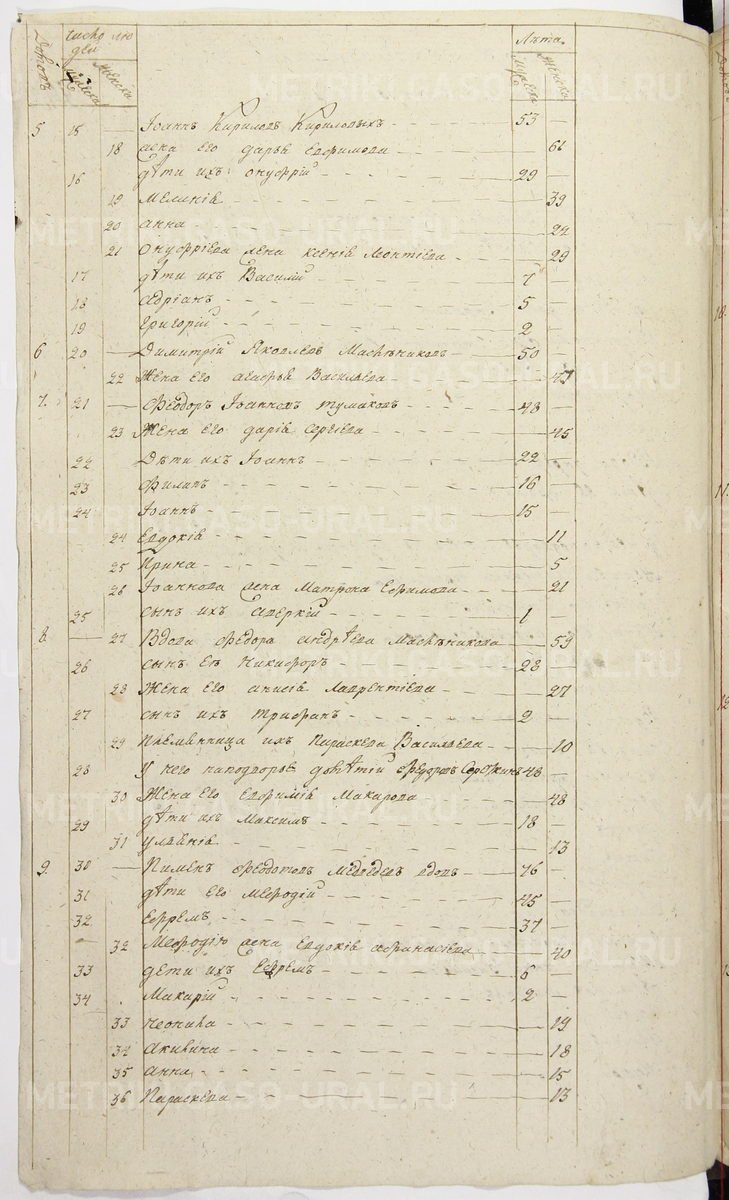 Домовъ число людей Лѣта.
Мужеска Женска Мужеска Женска
5 15 — Іоаннъ Кириловъ Кириловыхъ 53 —
18 жена его дарья Евфимова — 61
16 дѣти ихъ онуфрій 29 —
19 Меланія — 39
20 анна — 22
21 Онуфріева жена ксенія Леонтіева — 29
17 дѣти ихъ Василій 7 —
18 адріанъ 5 —
19 Григорій 2 —
6 20 — Димитрій Яковлевъ Масленниковъ 50 —
22 Жена его Васильева — 47
7. 21 — Феодоръ Іоанновъ тумаковъ 48 —
23 Жена его дарія сергіева — 45
22 Дѣти ихъ Іоаннъ 22 —
23 Филипъ 16 —
24 Іоаннъ 15 —
24 Евдокія — 11
25 Ирина — 5
26 Іоаннова жена Матрона Ефимова — 21
25 сынъ ихъ аверкій 1 —
8. — 27 Вдова Федора андрѣева Масленикова — 59
26 сынъ Ея Никифоръ 28 —
28 Жена его анисія Лаврентіева — 27
27 сынъ ихъ трифанъ 2 —
29 Племянница ихъ Параскева Васильева — 10
28 У него наподворье Феодоровъ 48 —
30 Жена его Евфимія Макарова — 48
29 дѣти ихъ Максимъ 18 —
31 ульянія — 13
9. 30 — Пименъ Феодотовъ медведевъ вдовъ 76 —
31 дѣти его мефодій 45 —
32 Ефремъ 37 —
32 Мефодію жена Евдокія афанасіева — 40
33 дети ихъ Ефремъ 6 —
34 Макарій 2 —
33 неонила — 19
34 акилина — 18
35 анна — 15
36 Параскева — 13
METRIKI.GASO-URAL.RU